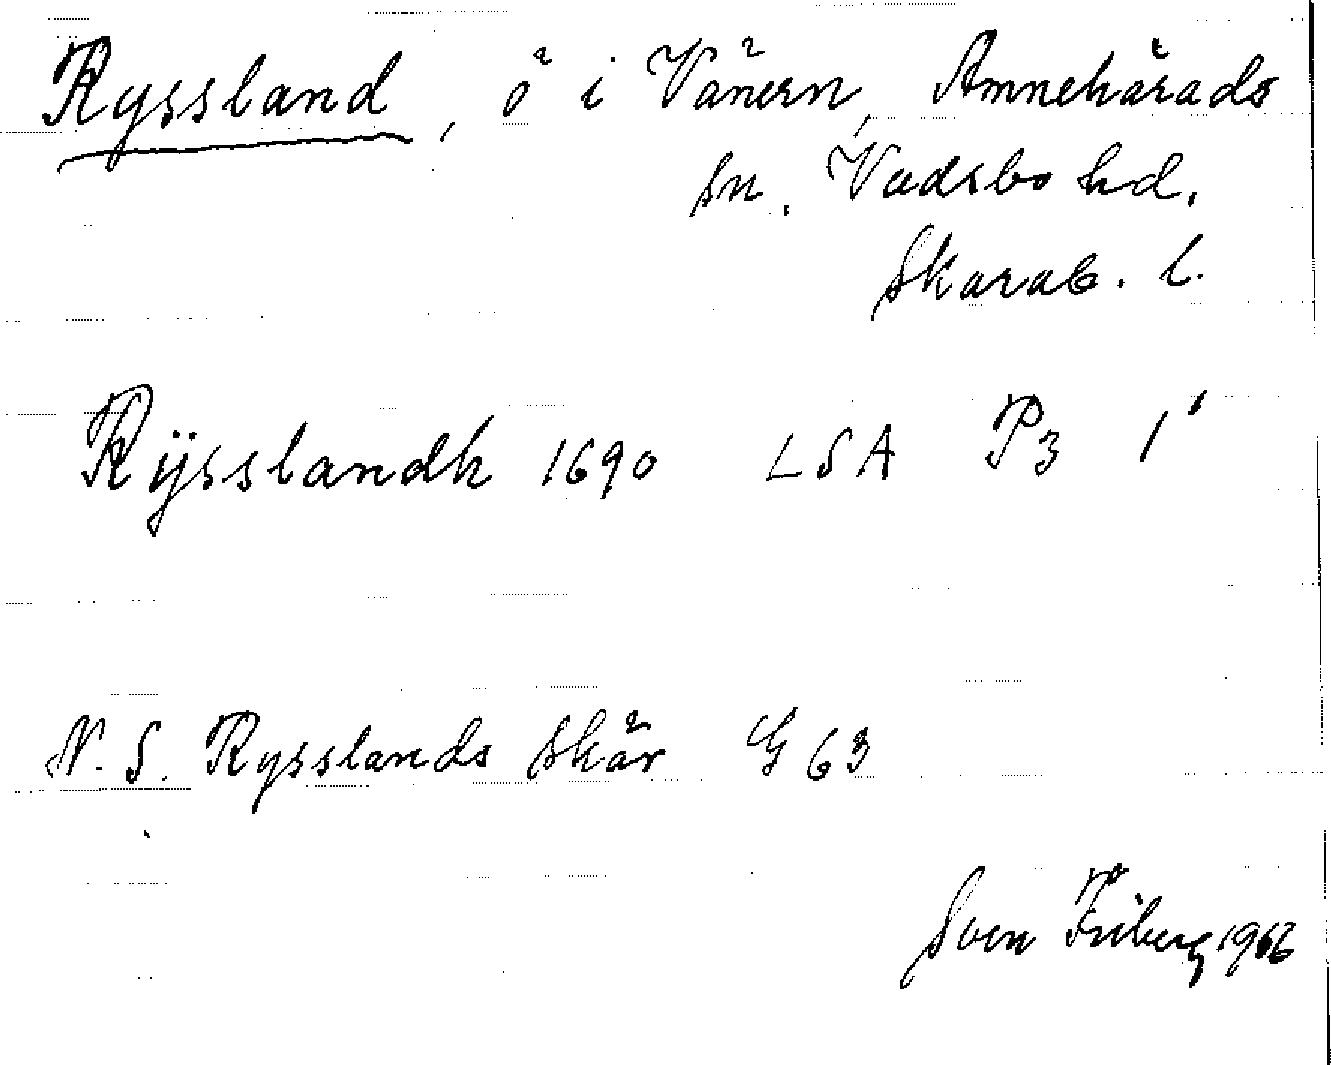 Ryssland, ö i Vänern, Amnehärads
sn. Vadsbo hd.
Skarab. l.
Rÿsslandh 1690 LSA P3 1'
N. S. Rysslands skär G 63
Sven Friberg 1966